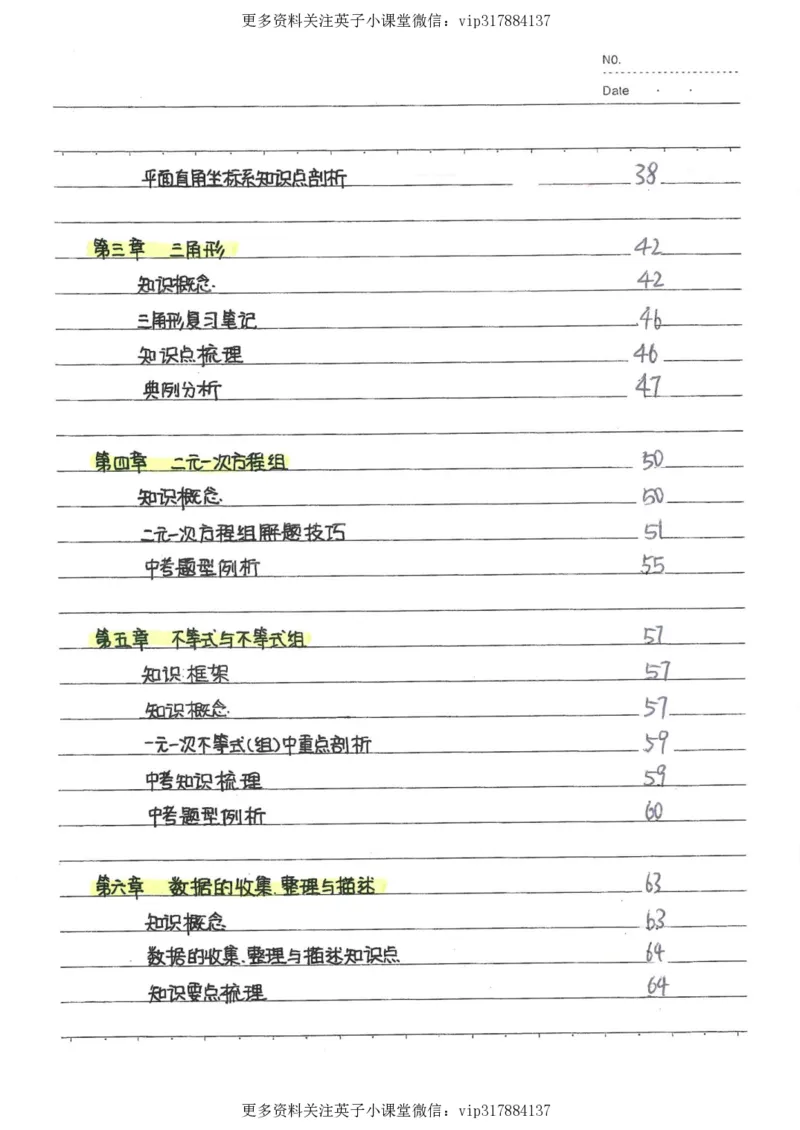 更多资料关注英子小课堂微信：vip317884137
NO.
Date
平面直角坐标系知识点剖析 38
第三章 三角形 42
知识概念. 42
三角形复习笔记 46
知识点梳理 46
典例分析 47
第四章 二元一次方程组 50
知识概念. 50
二元一次方程组解题技巧 51
中考题型例析 55
第五章 不等式与不等式组 57
知识框架 57
知识概念. 57
一元一次不等式(组)中重点剖析 59
中考知识梳理 59
中考题型例析 60
第六章 数据的收集、整理与描述 63
知识概念 63
数据的收集、整理与描述知识点 64
知识要点梳理 64
更多资料关注英子小课堂微信：vip317884137